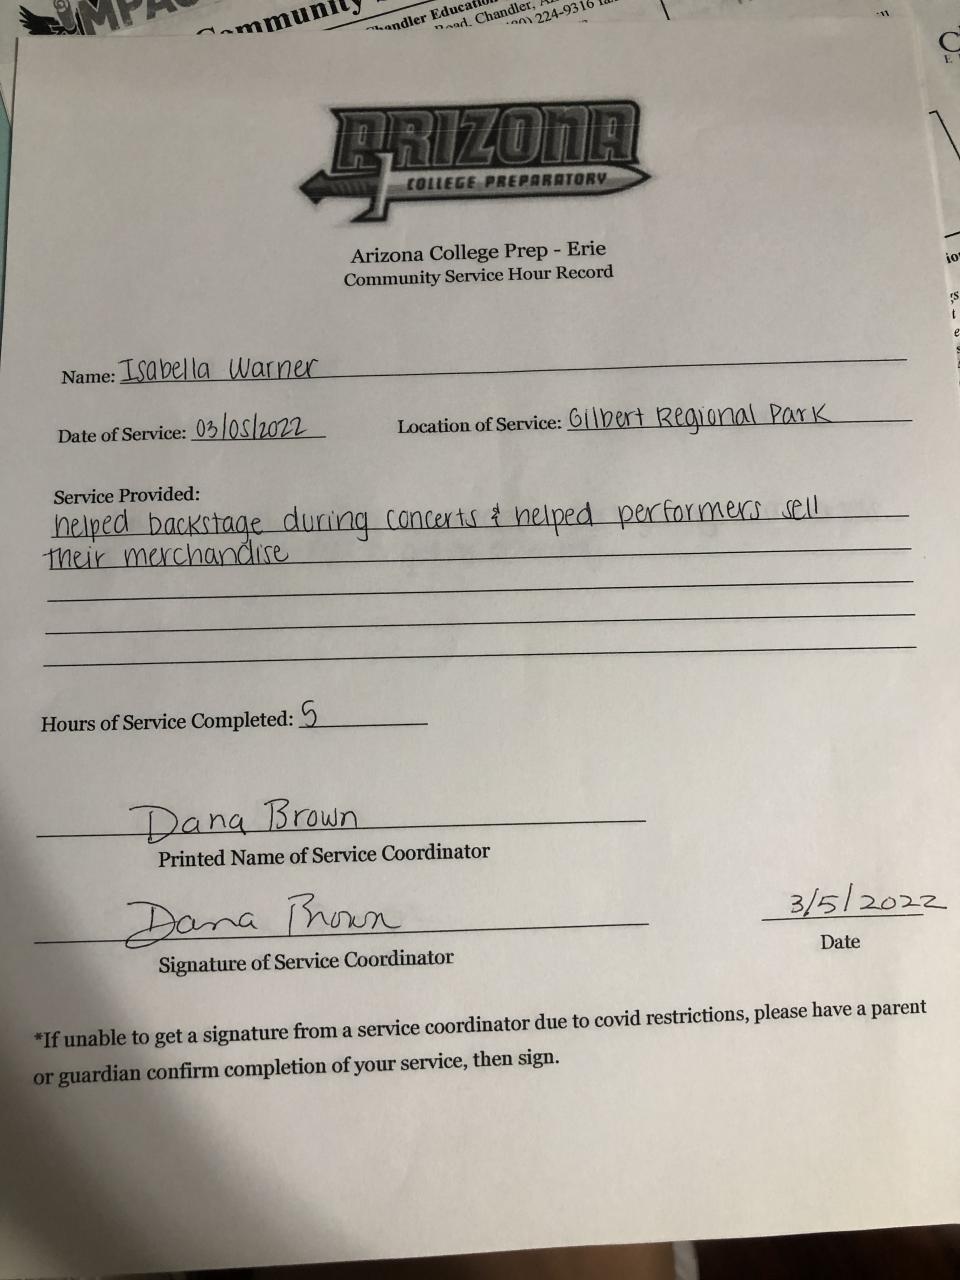 IMPAC
Community
Chandler Education
Road, Chandler, A
224-9316
ARIZONA
COLLEGE PREPARATORY
Arizona College Prep - Erie
Community Service Hour Record
Name: Isabella Warner
Date of Service: 03/05/2022 Location of Service: Gilbert Regional Park
Service Provided:
helped backstage during concerts & helped performers sell
their merchandise
Hours of Service Completed: 5
Dana Brown
Printed Name of Service Coordinator
Dana Brown 3/5/2022
Signature of Service Coordinator Date
*If unable to get a signature from a service coordinator due to covid restrictions, please have a parent
or guardian confirm completion of your service, then sign.